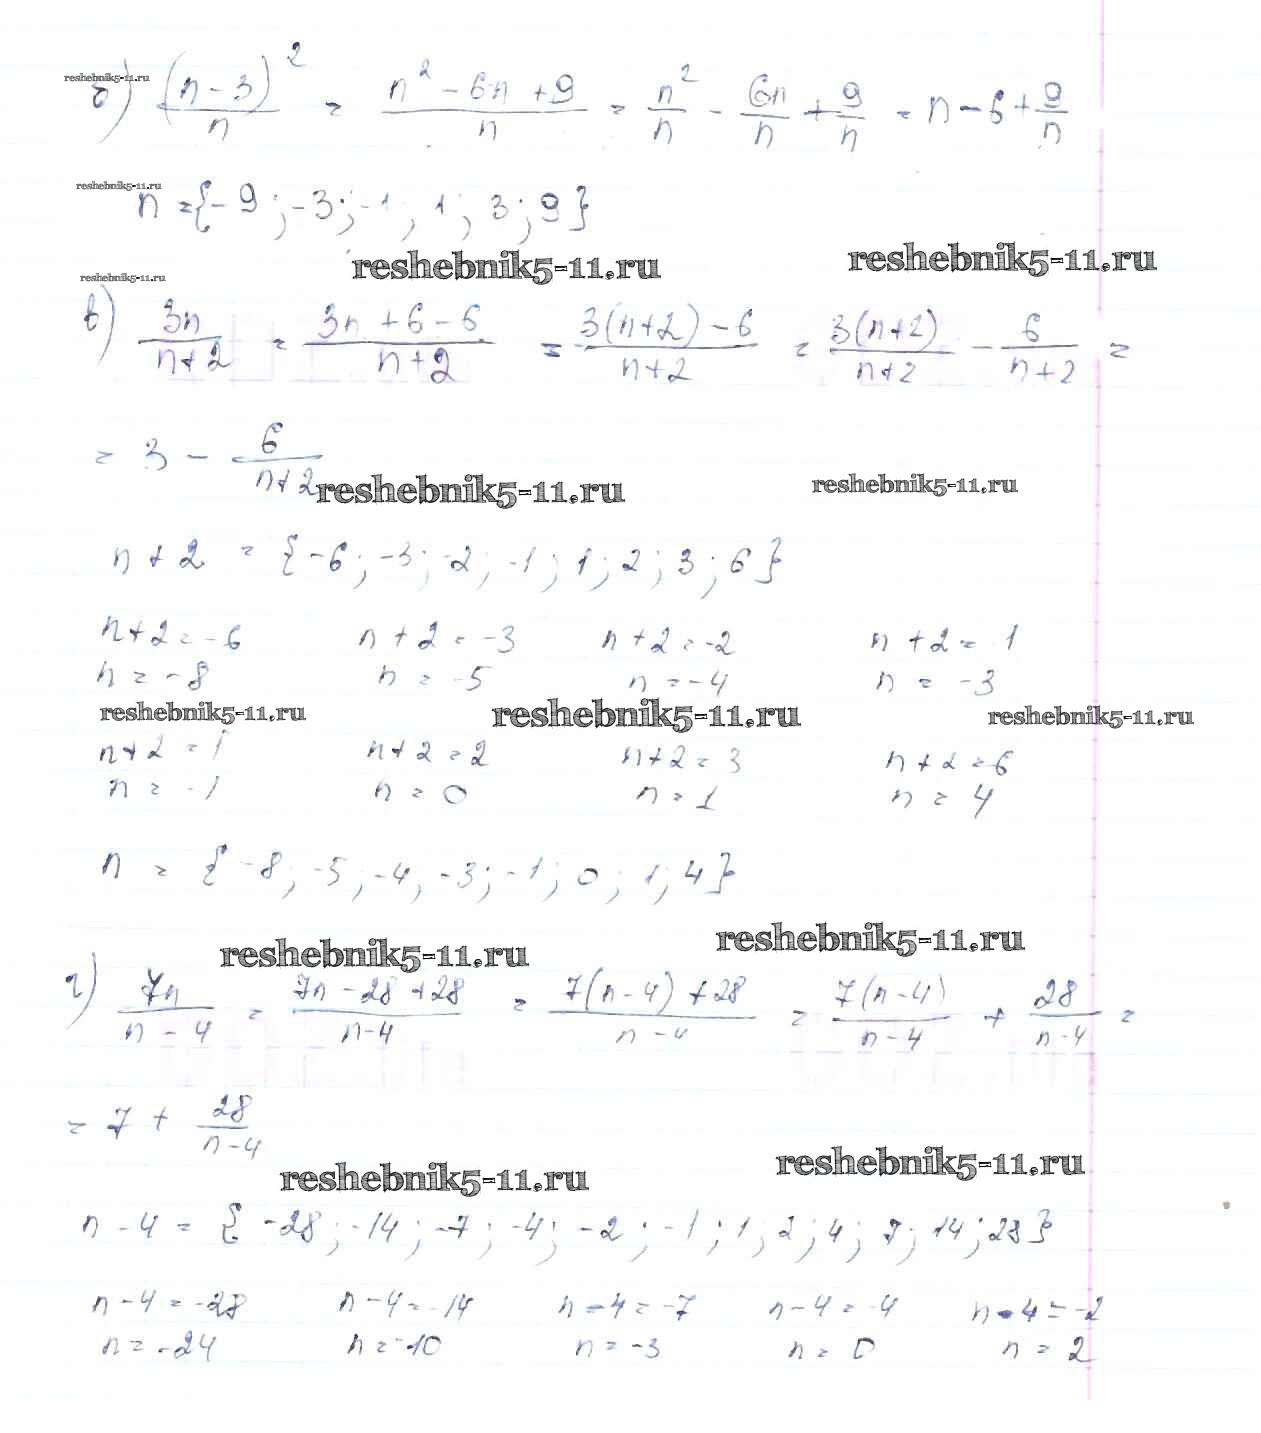 reshebnik5-11.ru
б) (n-3)²/n = n²-6n+9/n = n²/n - 6n/n + 9/n = n-6+9/n
reshebnik5-11.ru
n={-9;-3;-1;1;3;9}
reshebnik5-11.ru reshebnik5-11.ru
reshebnik5-11.ru
в) 3n/n+2 = 3n+6-6/n+2 = 3(n+2)-6/n+2 = 3(n+2)/n+2 - 6/n+2 =
= 3 - 6/n+2
reshebnik5-11.ru reshebnik5-11.ru
n+2 = {-6;-3;-2;-1;1;2;3;6}
n+2=-6 n+2=-3 n+2=-2 n+2=-1
n=-8 n=-5 n=-4 n=-3
reshebnik5-11.ru reshebnik5-11.ru reshebnik5-11.ru
n+2=1 n+2=2 n+2=3 n+2=6
n=-1 n=0 n=1 n=4
n = {-8;-5;-4,-3;-1;0;1;4}
reshebnik5-11.ru reshebnik5-11.ru
г) 7n/n-4 = 7n-28+28/n-4 = 7(n-4)+28/n-4 = 7(n-4)/n-4 + 28/n-4 =
= 7 + 28/n-4
reshebnik5-11.ru reshebnik5-11.ru
n-4 = {-28;-14;-7;-4;-2;-1;1;2;4;7;14;28}
n-4=-28 n-4=-14 n-4=-7 n-4=-4 n-4=-2
n=-24 n=-10 n=-3 n=0 n=2